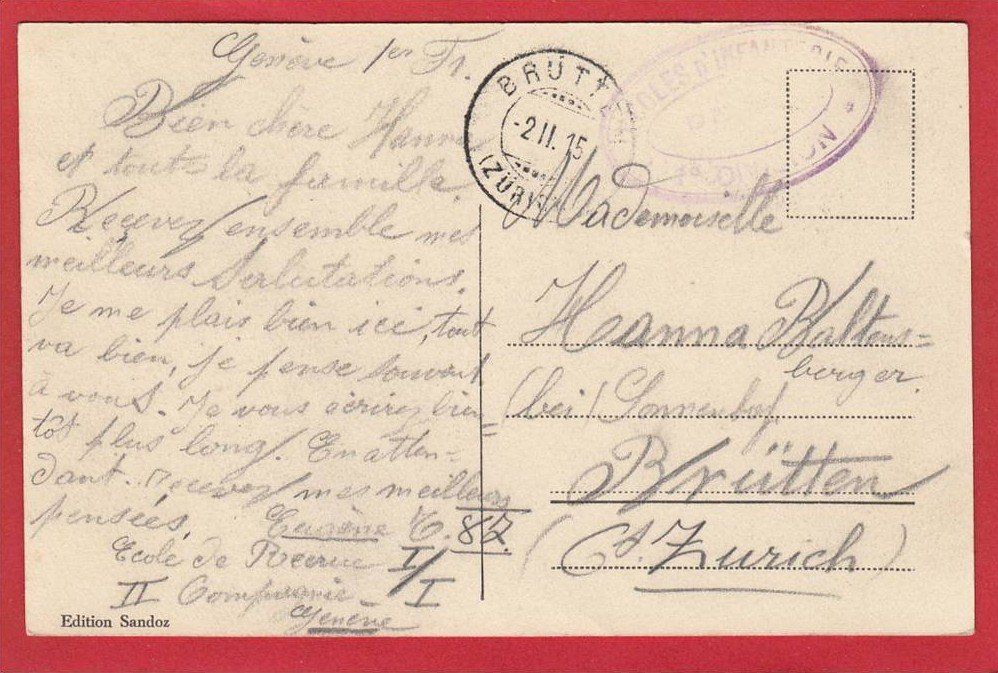 Genève 1er Fr.
Bien chere Hanna
et toute la famille.
Recevez ensemble mes
meilleurs Salutations.
Je me plais bien ici, tout
va bien, je pense souvent
à vous. Je vous écrirez bien=
tôt plus long. En atten-
dant. recevez mes meilleurs
pensées, Eugène C. 87.
Ecole de Recrue I/I
II Compagnie
Genève
Edition Sandoz
BRÜTTEN
-2.II.15
(ZÜRICH)
ÉCOLES D'INFANTERIE
DIVISION
Mademoiselle
Hanna Baltens=
berger
(bei) Sonnenhof
Brütten
(Ct. Zurich)